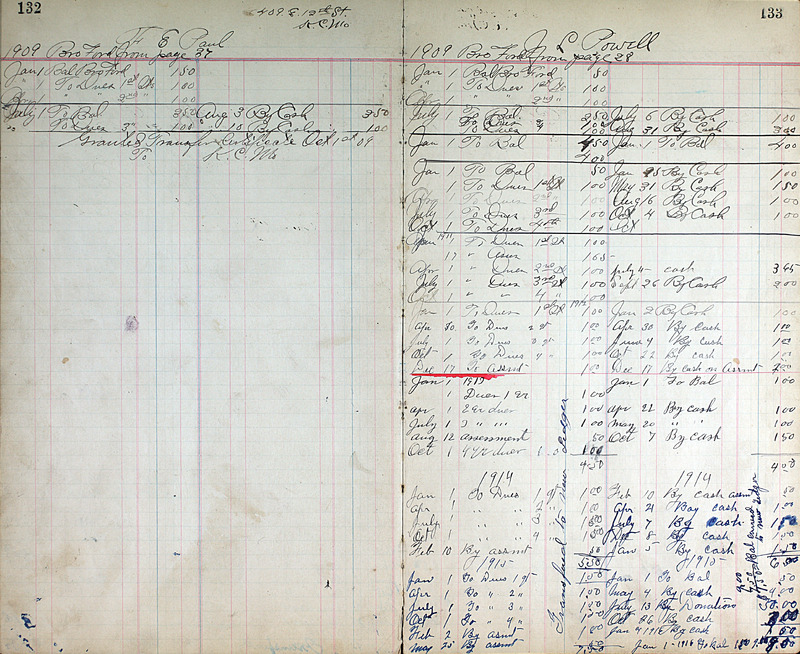 132
409 E. 12th St.
K.C. Mo
H E Paul
1909 Bro Ford from page 37
Jan 1 Bal Bro Ford 150
" 1 To Dues 1st Qr 100
Apr 1 " " 2nd " 100
July 1 To Bal 350 Aug 3 By Cash 350
" To Dues 3" 100 " 10 By Cash 100
Granted Transfer Certificate Oct 1st 09
To K.C. Mo
133
J L Powell
1909 Bro Ford from page 38
Jan 1 Bal Bro Ford 50
" 1 To Dues 1st Qr 100
Apr 1 " " 2nd " 100
July 1 To Bal 250 July 6 By Cash 100
To Dues 3 100 Aug 31 By Cash 300
To Dues 4 100
Jan 1 To Bal 450 Jan 1 To Bal 400
400
Jan 1 To Bal 50 Jan 25 By Cash 100
1 To Dues 1st Qr 100 May 31 By Cash 150
Apr 1 To Dues 2nd " 100 Aug 16 By Cash 100
July 1 To Dues 3rd 100 Oct 4 By Cash 100
Oct 1 To Dues 4th 100
Jan 1911 To Dues 1st Qr 100
17 " Asses 165
Apr 1 " Dues 2nd Qr 100 July 4 cash 365
July 1 " Dues 3rd Qr 100 Sept 26 By Cash 200
Oct 1 " " 4 " 100
1912
Jan 1 To Dues 1st Qr 100 Jan 2 By Cash 100
Apr 30 To Dues 2 qr 100 Apr 30 By cash 100
July 1 To Dues 3 qr 100 June 4 By cash 100
Oct 1 To Dues 4 " 100 Oct 22 By cash 100
Dec 17 To Assmt Dec 17 By cash on Assmt
Jan 1 1913 Jan 1 To Bal
1 Dues 1 Qr 100
Apr 1 2 Qr dues 100 Apr 22 By cash 100
July 1 3 " " " 100 May 20 " " 100
Aug 12 assessment 50 Oct 7 By cash 150
Oct 1 4 Qr dues 100
450 400
1914 1914
Jan 1 To Dues 1 qr 100 Feb 10 By cash assmt 50
Apr 1 " " 2 100 Apr 21 By cash 100
July 1 " " 3 July 7 By cash
Oct 1 " " 4 100 Dec 8 By cash
Feb 10 By assmt 50 Jan 5 By cash 150
550
1915 1915
Jan 1 To Dues 1 qr 100 Jan 1 To Bal 50
Apr 1 To " 2 " 100 May 4 By cash
July 1 To " 3 " 100 July 13 By Donation
Oct 1 To " 4 " 100 Oct 26 By cash
Feb 2 By assmt Jan 4 1916 By cash
May 25 By assmt Jan 1 - 1916 To Bal
Transferred to new Ledger
Bal carried to new Ledger